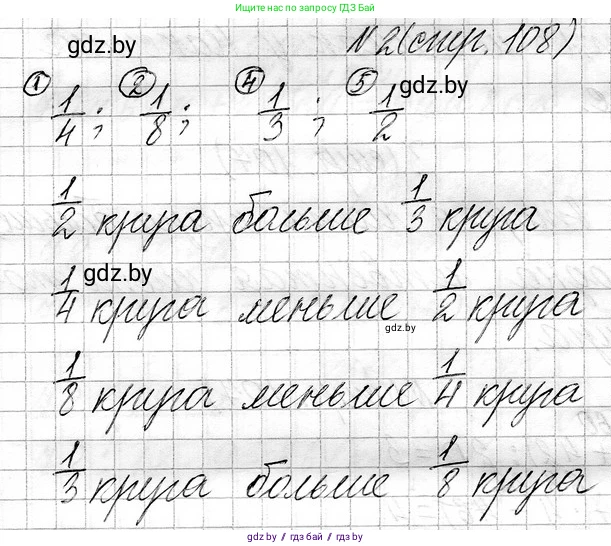 Ищите нас по запросу ГДЗ Бай в Google
gdz.by
№2 (стр. 108)
① 1/4; ② 1/8; ④ 1/3; ⑤ 1/2
gdz.by
1/2 круга больше 1/3 круга
gdz.by
1/4 круга меньше 1/2 круга
gdz.by
1/8 круга меньше 1/4 круга
1/3 круга больше 1/8 круга
gdz.by // гдз бай // gdz.by